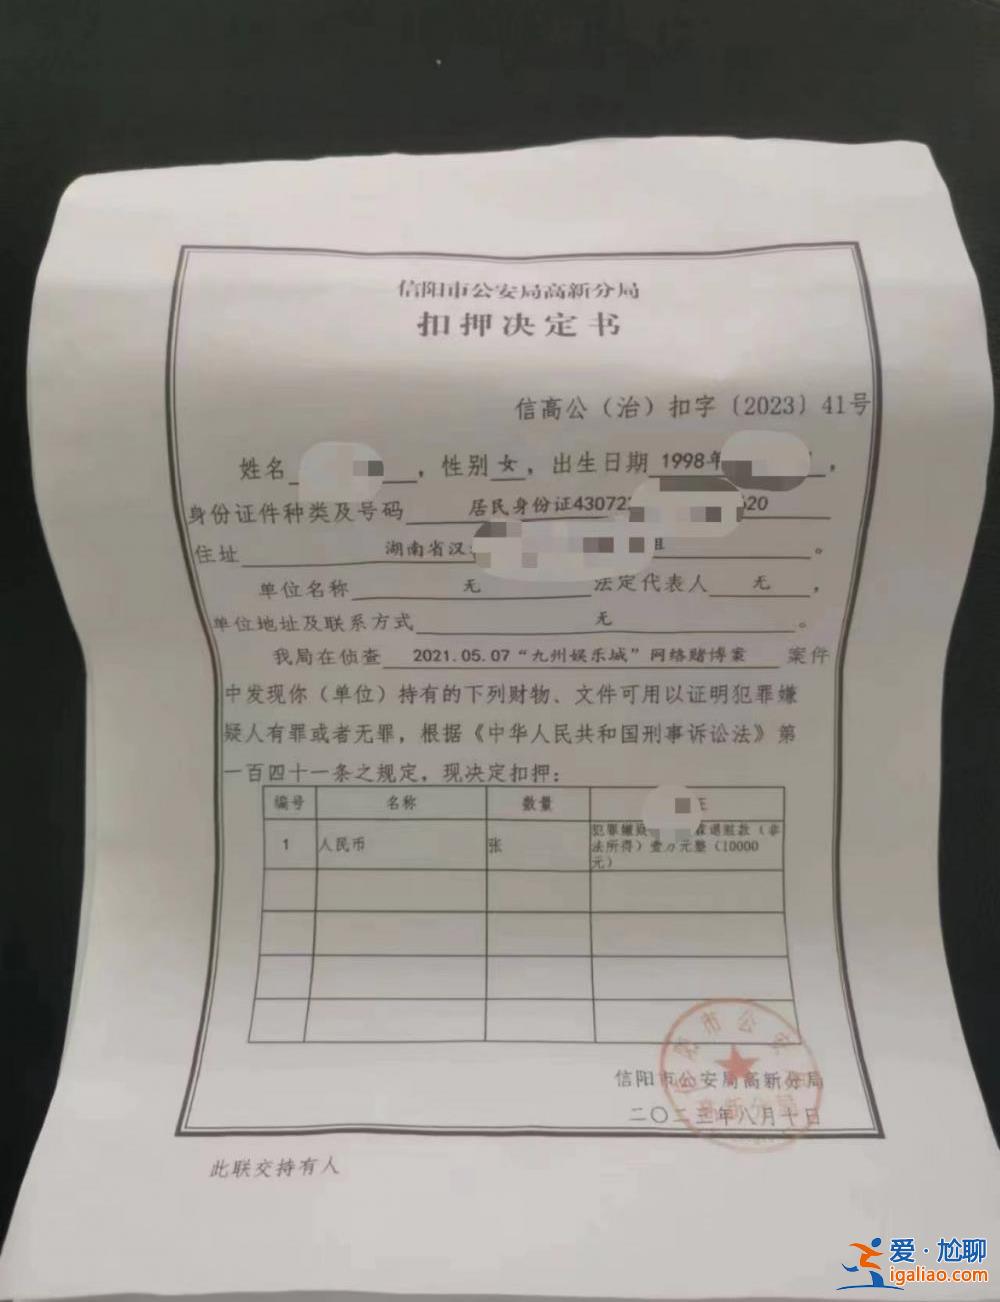 信阳市公安局高新分局
扣押决定书
信高公（治）扣字〔2023〕41号
姓名 ，性别 女，出生日期 1998年 ，
身份证件种类及号码 居民身份证43072 620
住址 湖南省汉 组 。
单位名称 无 法定代表人 无 ，
单位地址及联系方式 无 。
我局在侦查 2021.05.07“九州娱乐城”网络赌博案 案件
中发现你（单位）持有的下列财物、文件可用以证明犯罪嫌
疑人有罪或者无罪，根据《中华人民共和国刑事诉讼法》第
一百四十一条之规定，现决定扣押：
编号 名称 数量
1 人民币 张 犯罪嫌疑 退赃款（非
法所得）壹万元整（10000
元）
信阳市公安局高新分局
二〇二三年八月十日
此联交持有人
爱·尬聊
igaliao.com